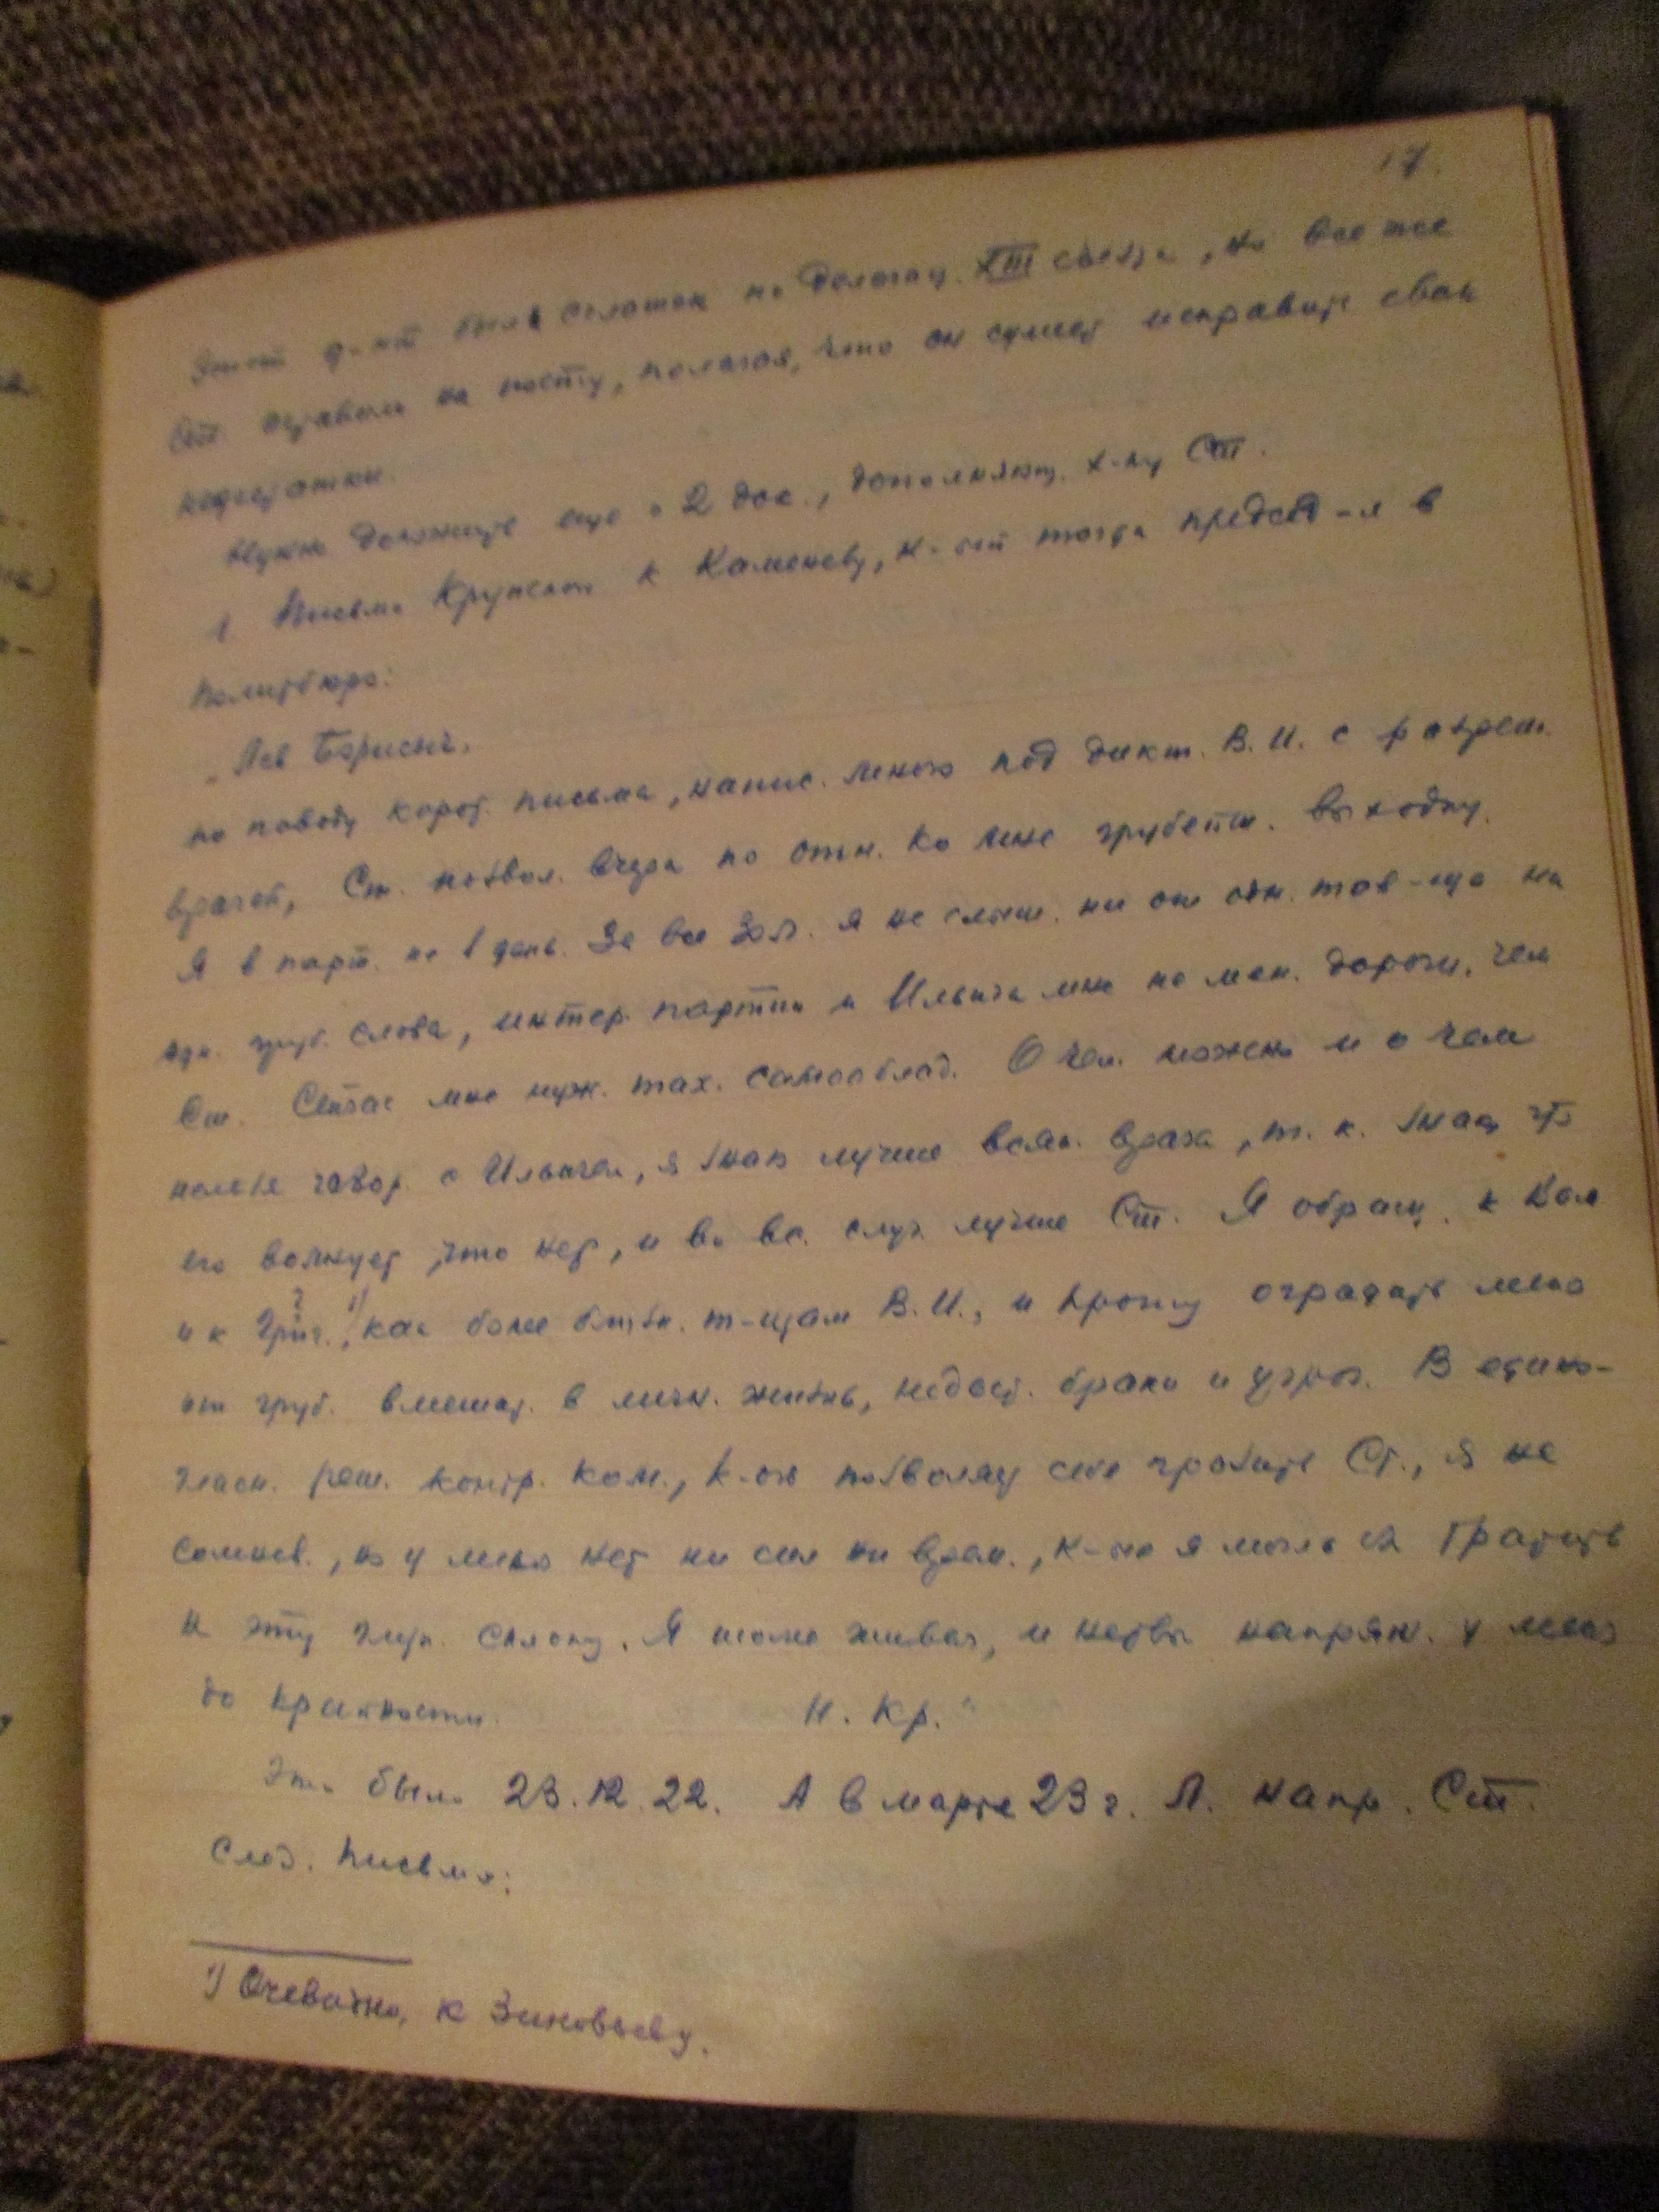 17.
Этот д-нт был оглашен на делегац. XIII съезда, но все же
Ст. оставили на посту, полагая, что он сумеет исправить свои
недостатки.
Нужно доложить еще о 2 док., дополняющ. х-ку Ст.
1 Письмо Крупской к Каменеву, к-ый тогда председ-л в
Политбюро:
„Лев Борисыч,
по поводу корот. письма, напис. мною под дикт. В. И. с разреш.
врачей, Ст. позвол. вчера по отн. ко мне грубейш. выходку.
Я в парт. не 1 день. За все 30 л. я не слыш. ни от одн. тов-ща ни
одн. груб. слова, интер. партии и Ильича мне не мен. дороги, чем
Ст. Сейчас мне нуж. max. самооблад. О чем можно и о чем
нельзя говор. с Ильичем, я знаю лучше всяк. врача, т. к. знаю, что
его волнует, что нет, и во вс. случ. лучше Ст. Я обращ. к Вам
и к Григ. ?¹⁾, как более близк. т-щам В. И., и прошу оградить меня
от груб. вмешат. в личн. жизнь, недост. брани и угроз. В едино-
гласн. реш. контр. ком., к-ой позволяет себе грозить Ст., я не
сомнев., но у меня нет ни сил ни врем., к-ые я могла бы тратить
на эту глуп. склоку. Я тоже живая, и нервы напряж. у меня
до крайности. Н. Кр."
Это было 23.12.22. А в марте 23 г. Л. напр. Ст.
след. письмо:
¹⁾ Очевидно, к Зиновьеву.